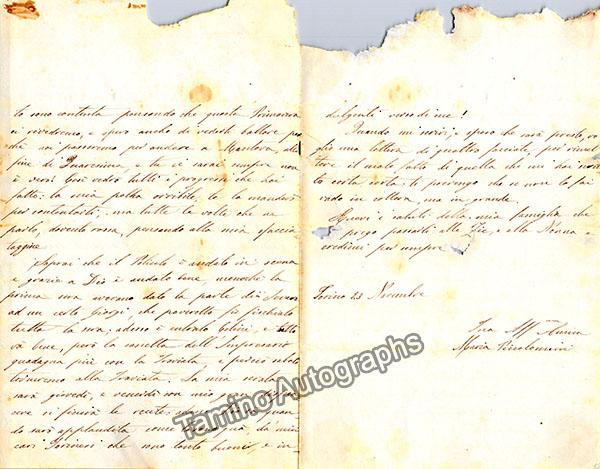 Io sono contenta pensando che questa Primavera
ci rivedremo, e spero anche di vederti
chè noi passeremo per andare a Mantova, alla
fine di Quaresima, e tu ci sarai sempre non
è vero? Così vedrò tutti i progressi che hai
fatto: la mia polka orribile, te la manderò
per contentarti; ma tutte le volte che ne
parlo, divento rossa, pensando alla mia sfaccia-
taggine
Saprai che il è andato in scena
e grazie a Dio è andato bene, menochè la
prima sera avevano dato la parte di
ad un certo Giorgi che poveretto fu fischiato
tutta la sera, adesso è e tutto
và bene, però la cassetta dell'Impresario
guadagna più con la Traviata e perciò sabato
torneremo alla Traviata. La mia serata
sarà giovedì, e venerdì
si finirà le recite;
sarò applaudita come da' miei
cari Torinesi che sono tanto buoni, e in-
dulgenti verso di me!
Quando mi scrivi, e spero che sarà presto, vo-
glio una lettera di quattro facciate, per rimet-
tere il male fatto di quella che mi hai scrit-
to corta corta: ti prevengo che se non lo fai
vado in collera, ma in grande.
Ricevi i saluti della mia famiglia che
prego passarli alle Zie, e alla Nonna e
credimi per sempre
Torino 23 Novembre
Tua Aff. Amica
Maria Piccolomini
Tamino Autographs